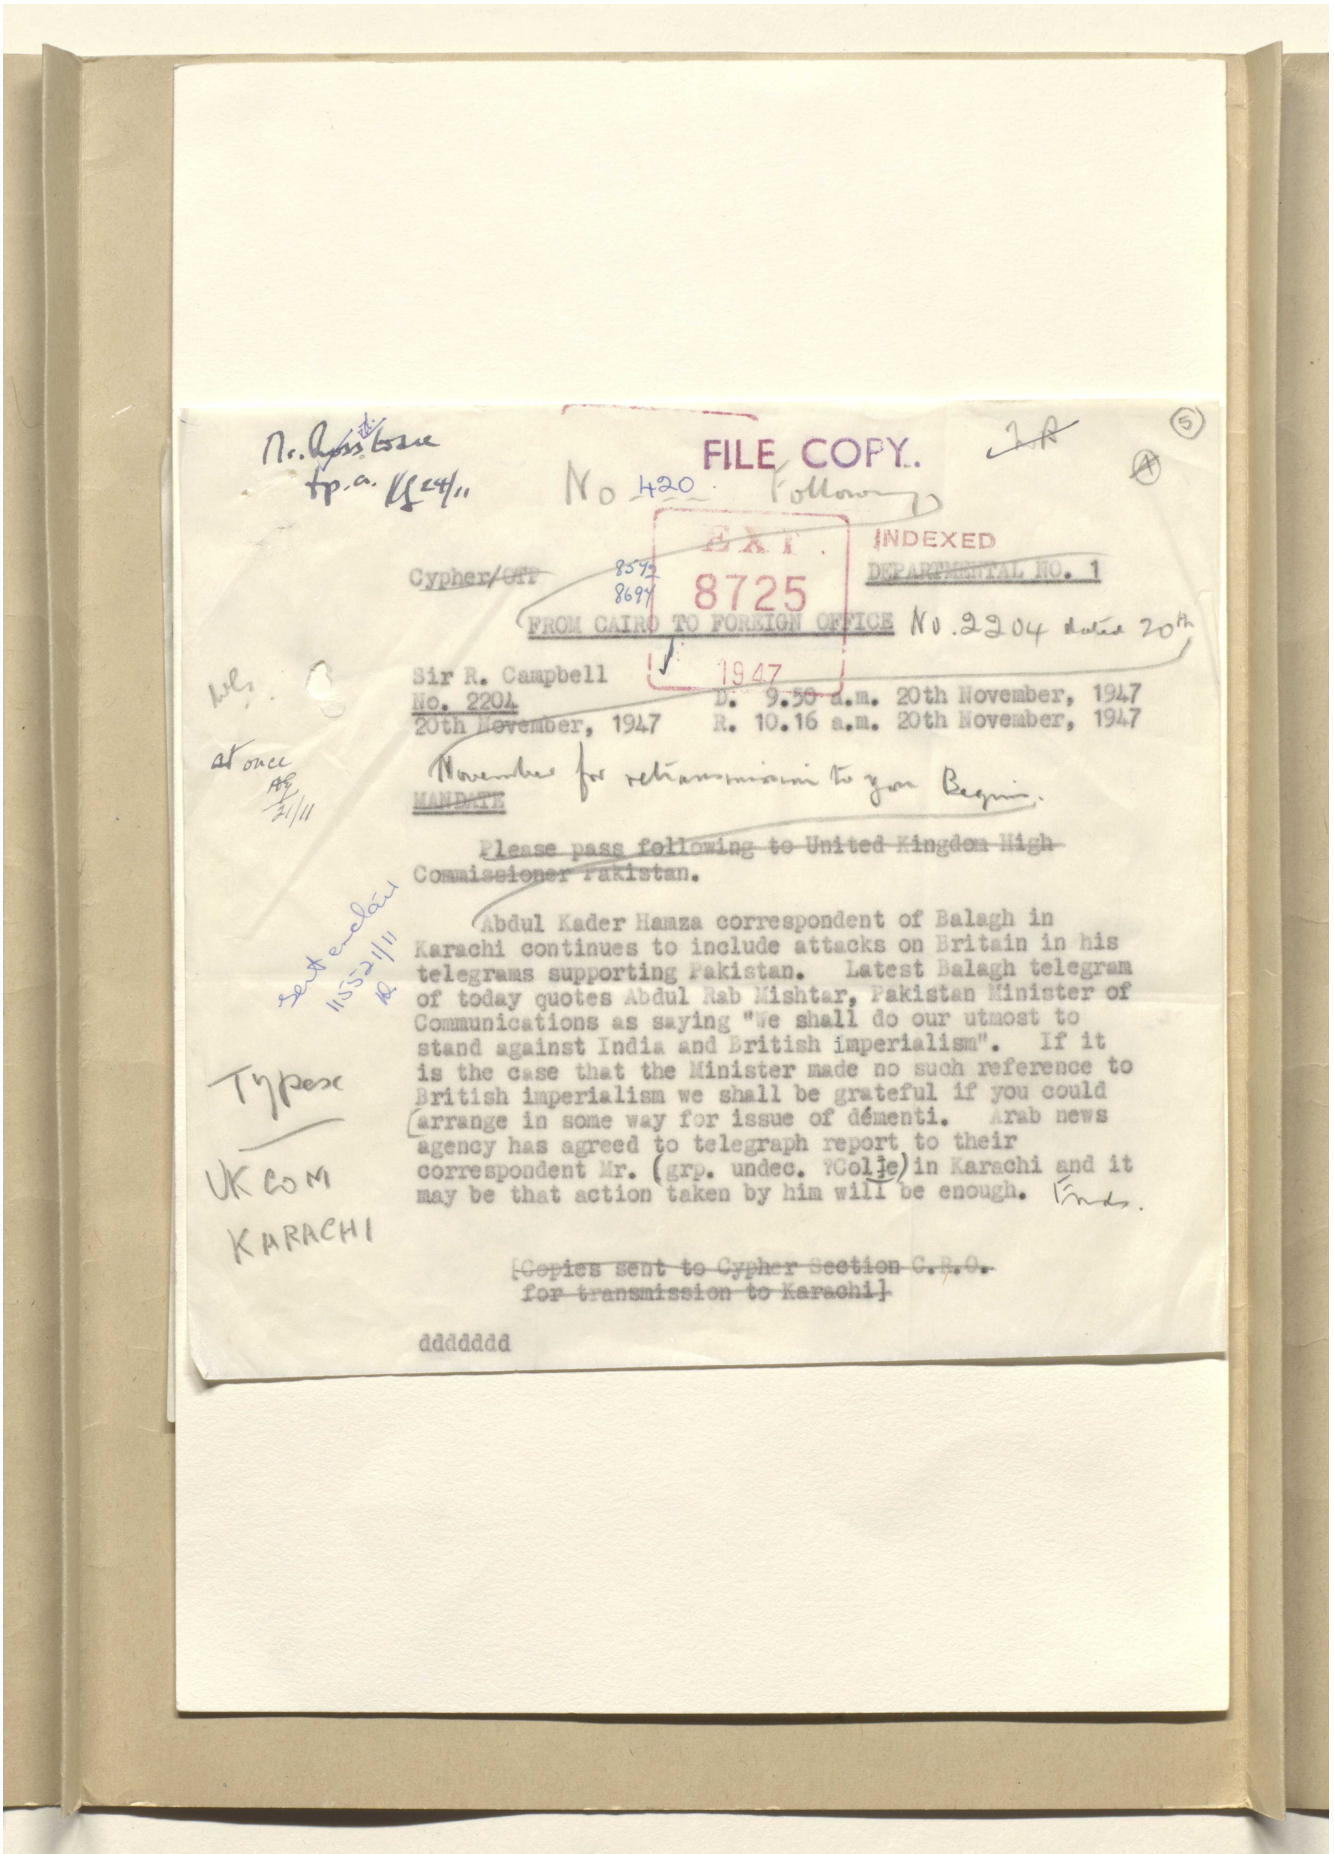 5
Mr.
p.a. 24/11
FILE COPY.
No 420. Following
EXT.
8725
1947
INDEXED
Cypher/OTP
8592
8697
DEPARTMENTAL NO. 1
FROM CAIRO TO FOREIGN OFFICE No. 2204 dated 20th
Sir R. Campbell
No. 2204 D. 9.50 a.m. 20th November, 1947
20th November, 1947 R. 10.16 a.m. 20th November, 1947
at once
21/11
November for retransmission to you Begins.
MANDATE
Please pass following to United Kingdom High
Commissioner Pakistan.
Abdul Kader Hamza correspondent of Balagh in
Karachi continues to include attacks on Britain in his
telegrams supporting Pakistan. Latest Balagh telegram
of today quotes Abdul Rab Mishtar, Pakistan Minister of
Communications as saying "We shall do our utmost to
stand against India and British imperialism". If it
is the case that the Minister made no such reference to
British imperialism we shall be grateful if you could
arrange in some way for issue of démenti. Arab news
agency has agreed to telegraph report to their
correspondent Mr. (grp. undec. ?Colje) in Karachi and it
may be that action taken by him will be enough. Ends.
sent enclair
1155 21/11
Typex
UKCOM
KARACHI
[Copies sent to Cypher Section C.R.O.
for transmission to Karachi]
ddddddd